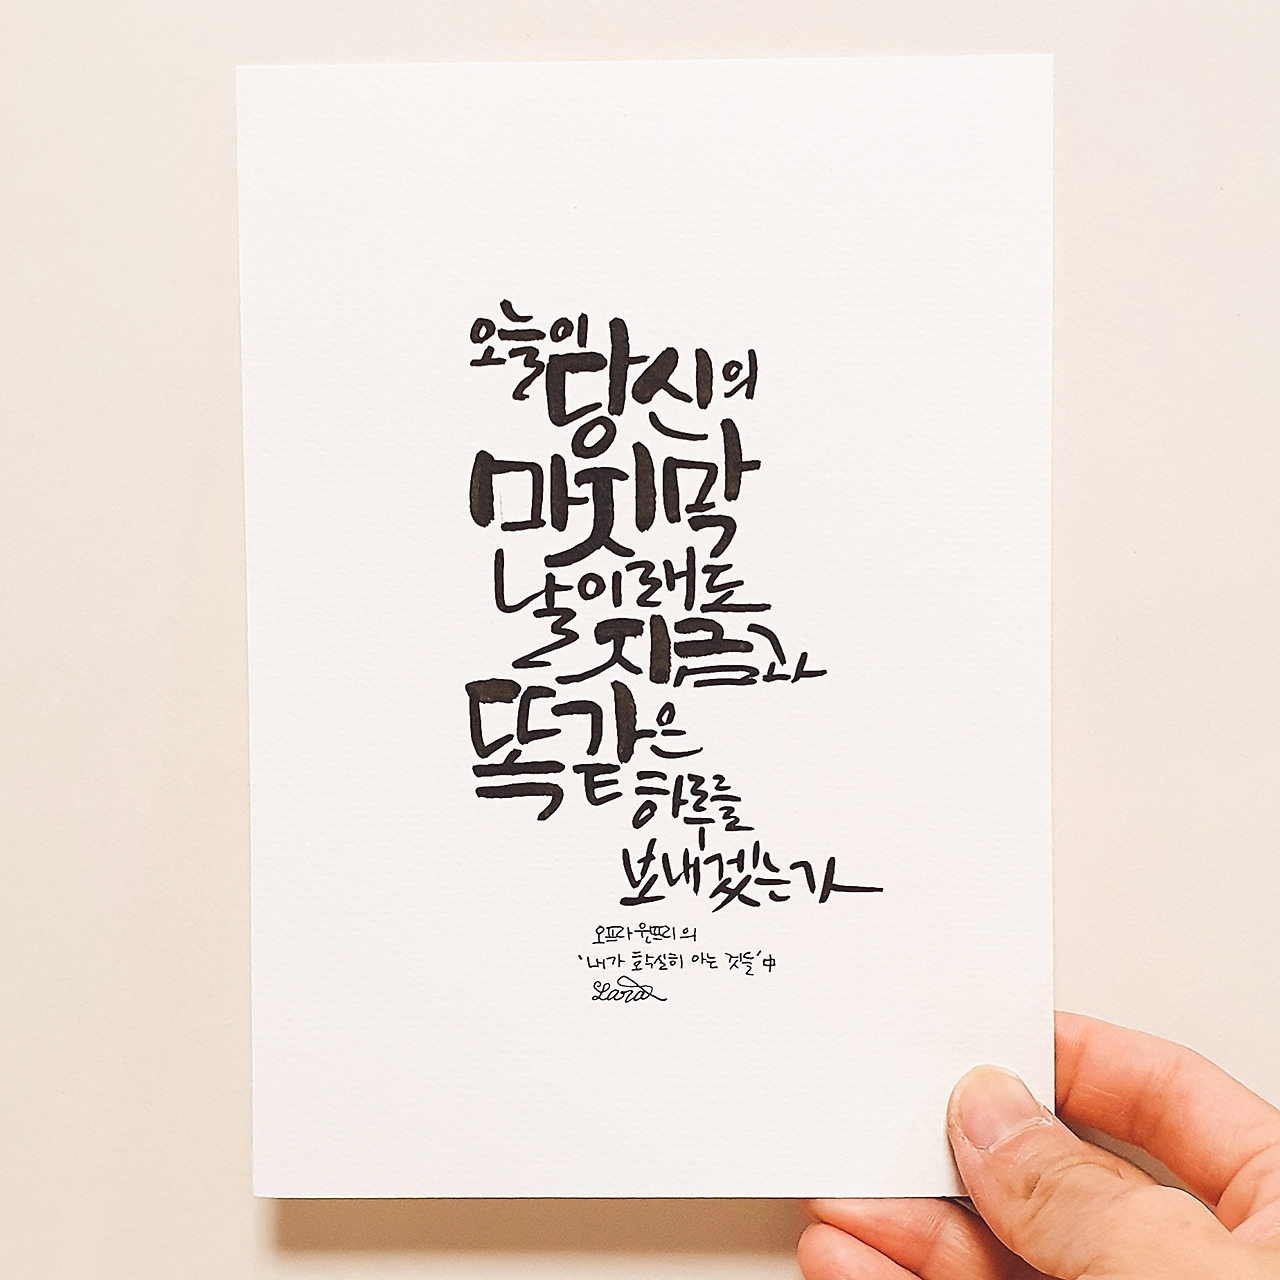 오늘이 당신의
마지막
날이래도
지금과
똑같은
하루를
보내겠는가
오프라 윈프리의
'내가 확실히 아는 것들' 中
Lara